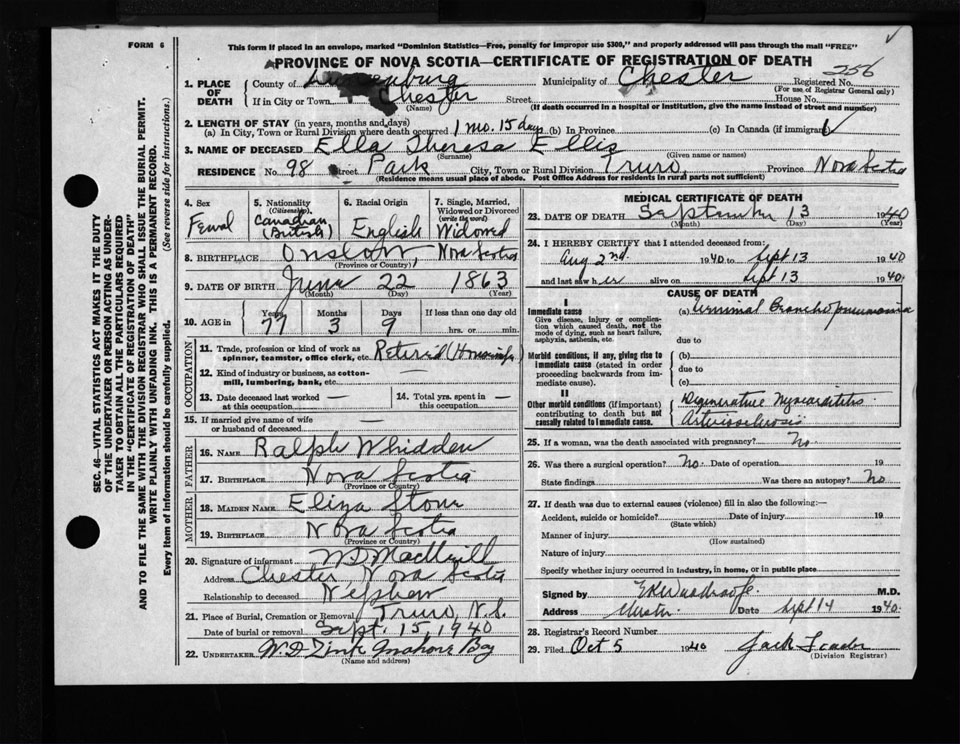 FORM 6
This form if placed in an envelope, marked "Dominion Statistics—Free, penalty for improper use $300," and properly addressed will pass through the mail "FREE"
PROVINCE OF NOVA SCOTIA—CERTIFICATE OF REGISTRATION OF DEATH
256
1. PLACE OF DEATH
County of Lunenburg Municipality of Chester Registered No.
(For use of Registrar General only)
If in City or Town Chester Street House No.
(Name) (If death occurred in a hospital or institution, give the name instead of street and number)
2. LENGTH OF STAY (in years, months and days)
(a) In City, Town or Rural Division where death occurred 1 mo. 15 days (b) In Province (c) In Canada (if immigrant)
3. NAME OF DECEASED Ella Theresa Ellis
(Surname) (Given name or names)
RESIDENCE No. 98 Street Park City, Town or Rural Division Truro, Province Nova Scotia
(Residence means usual place of abode. Post Office Address for residents in rural parts not sufficient)
4. Sex 5. Nationality (Citizenship) 6. Racial Origin 7. Single, Married, Widowed or Divorced (write the word)
Femal Canadian (British) English Widowed
8. BIRTHPLACE Onslow, Nova Scotia
(Province or Country)
9. DATE OF BIRTH June 22 1863
(Month) (Day) (Year)
10. AGE in Years Months Days If less than one day old
77 3 9 hrs. or min.
OCCUPATION
11. Trade, profession or kind of work as spinner, teamster, office clerk, etc. Retired (Housewife)
12. Kind of industry or business, as cotton-mill, lumbering, bank, etc. —
13. Date deceased last worked at this occupation —
14. Total yrs. spent in this occupation —
15. If married give name of wife or husband of deceased —
FATHER
16. Name Ralph Whidden
17. Birthplace Nova Scotia
(Province or Country)
MOTHER
18. Maiden Name Eliza
19. Birthplace Nova Scotia
(Province or Country)
20. Signature of informant
Address Chester, Nova Scotia
Relationship to deceased Nephew
21. Place of Burial, Cremation or Removal Truro, N.S.
Date of burial or removal Sept. 15, 1940
22. Undertaker W.D. Zink Mahone Bay
(Name and address)
MEDICAL CERTIFICATE OF DEATH
23. DATE OF DEATH September 13 1940
(Month) (Day) (Year)
24. I HEREBY CERTIFY that I attended deceased from:
Aug 2nd 1940 to Sept 13 1940
and last saw her alive on Sept 13 1940.
CAUSE OF DEATH
I
Immediate cause
Give disease, injury or complication which caused death, not the mode of dying, such as heart failure, asphyxia, asthenia, etc.
(a) Terminal Bronchopneumonia
due to
Morbid conditions, if any, giving rise to immediate cause (stated in order proceeding backwards from immediate cause).
(b)
due to
(c)
II
Other morbid conditions (if important) contributing to death but not causally related to immediate cause.
Degenerative Myocarditis.
Arteriosclerosis
25. If a woman, was the death associated with pregnancy? No.
26. Was there a surgical operation? No. Date of operation 19
State findings Was there an autopsy? No
27. If death was due to external causes (violence) fill in also the following:—
Accident, suicide or homicide? Date of injury 19
(State which)
Manner of injury
(How sustained)
Nature of injury
Specify whether injury occurred in industry, in home, or in public place
Signed by M.D.
Address Chester. Date Sept 14 1940.
28. Registrar's Record Number
29. Filed Oct 5 1940 Jack
(Division Registrar)
SEC. 46—VITAL STATISTICS ACT MAKES IT THE DUTY
OF THE UNDERTAKER OR PERSON ACTING AS UNDER-
TAKER TO OBTAIN ALL THE PARTICULARS REQUIRED
IN THE "CERTIFICATE OF REGISTRATION OF DEATH"
AND TO FILE THE SAME WITH THE DIVISION REGISTRAR WHO SHALL ISSUE THE BURIAL PERMIT.
WRITE PLAINLY WITH UNFADING INK. THIS IS A PERMANENT RECORD.
Every item of information should be carefully supplied. (See reverse side for instructions.)